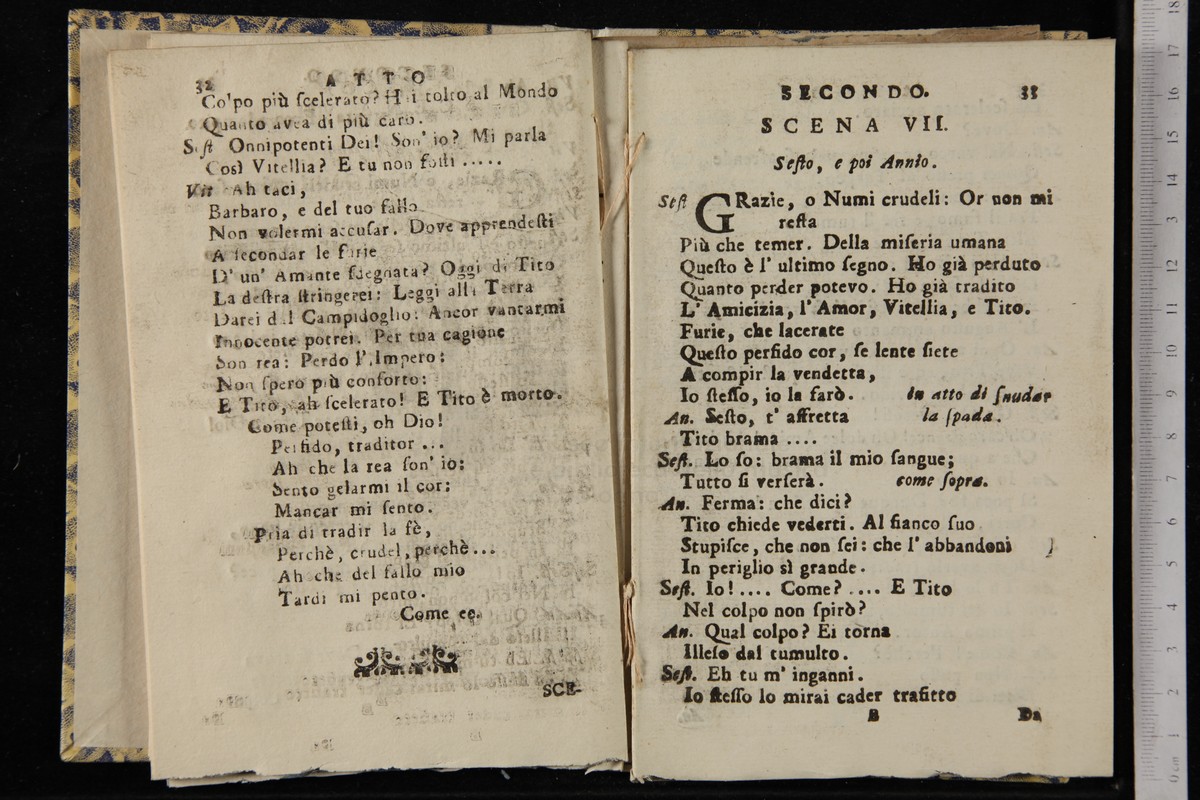 32 ATTO
Co'po più ſcelerato? Hai tolto al Mondo
Quanto avea di più caro.
Seſt Onnipotenti Dei! Son' io? Mi parla
Così Vitellia? E tu non foſti .....
Vit Ah taci,
Barbaro, e del tuo fallo
Non volermi accuſar. Dove apprendeſti
A ſecondar le furie
D' un' Amante ſdegnata? Oggi di Tito
La deſtra ſtringerei: Leggi alla Terra
Darei dal Campidoglio: Ancor vantarmi
Innocente potrei. Per tua cagione
Son rea: Perdo l' Impero:
Non ſpero più conforto:
E Tito, ah ſcelerato! E Tito è morto.
Come poteſti, oh Dio!
Perfido, traditor ...
Ah che la rea ſon' io:
Sento gelarmi il cor:
Mancar mi ſento.
Pria di tradir la fè,
Perchè, crudel, perchè...
Ah che del fallo mio
Tardi mi pento.
Come ec.
SCE-
SECONDO. 33
SCENA VII.
Seſto, e poi Annio.
Seſt GRazie, o Numi crudeli: Or non mi
reſta
Più che temer. Della miſeria umana
Queſto è l' ultimo ſegno. Ho già perduto
Quanto perder potevo. Ho già tradito
L' Amicizia, l' Amor, Vitellia, e Tito.
Furie, che lacerate
Queſto perfido cor, ſe lente ſiete
A compir la vendetta,
Io ſteſſo, io la farò. in atto di ſnudar
An. Seſto, t' affretta la ſpada.
Tito brama ....
Seſt. Lo ſo: brama il mio ſangue;
Tutto ſi verſerà. come ſopra.
An. Ferma: che dici?
Tito chiede vederti. Al fianco ſuo
Stupiſce, che non ſei: che l' abbandoni
In periglio sì grande.
Seſt. Io! .... Come? .... E Tito
Nel colpo non ſpirò?
An. Qual colpo? Ei torna
Illeſo dal tumulto.
Seſt. Eh tu m' inganni.
Io ſteſſo lo mirai cader trafitto
B Da